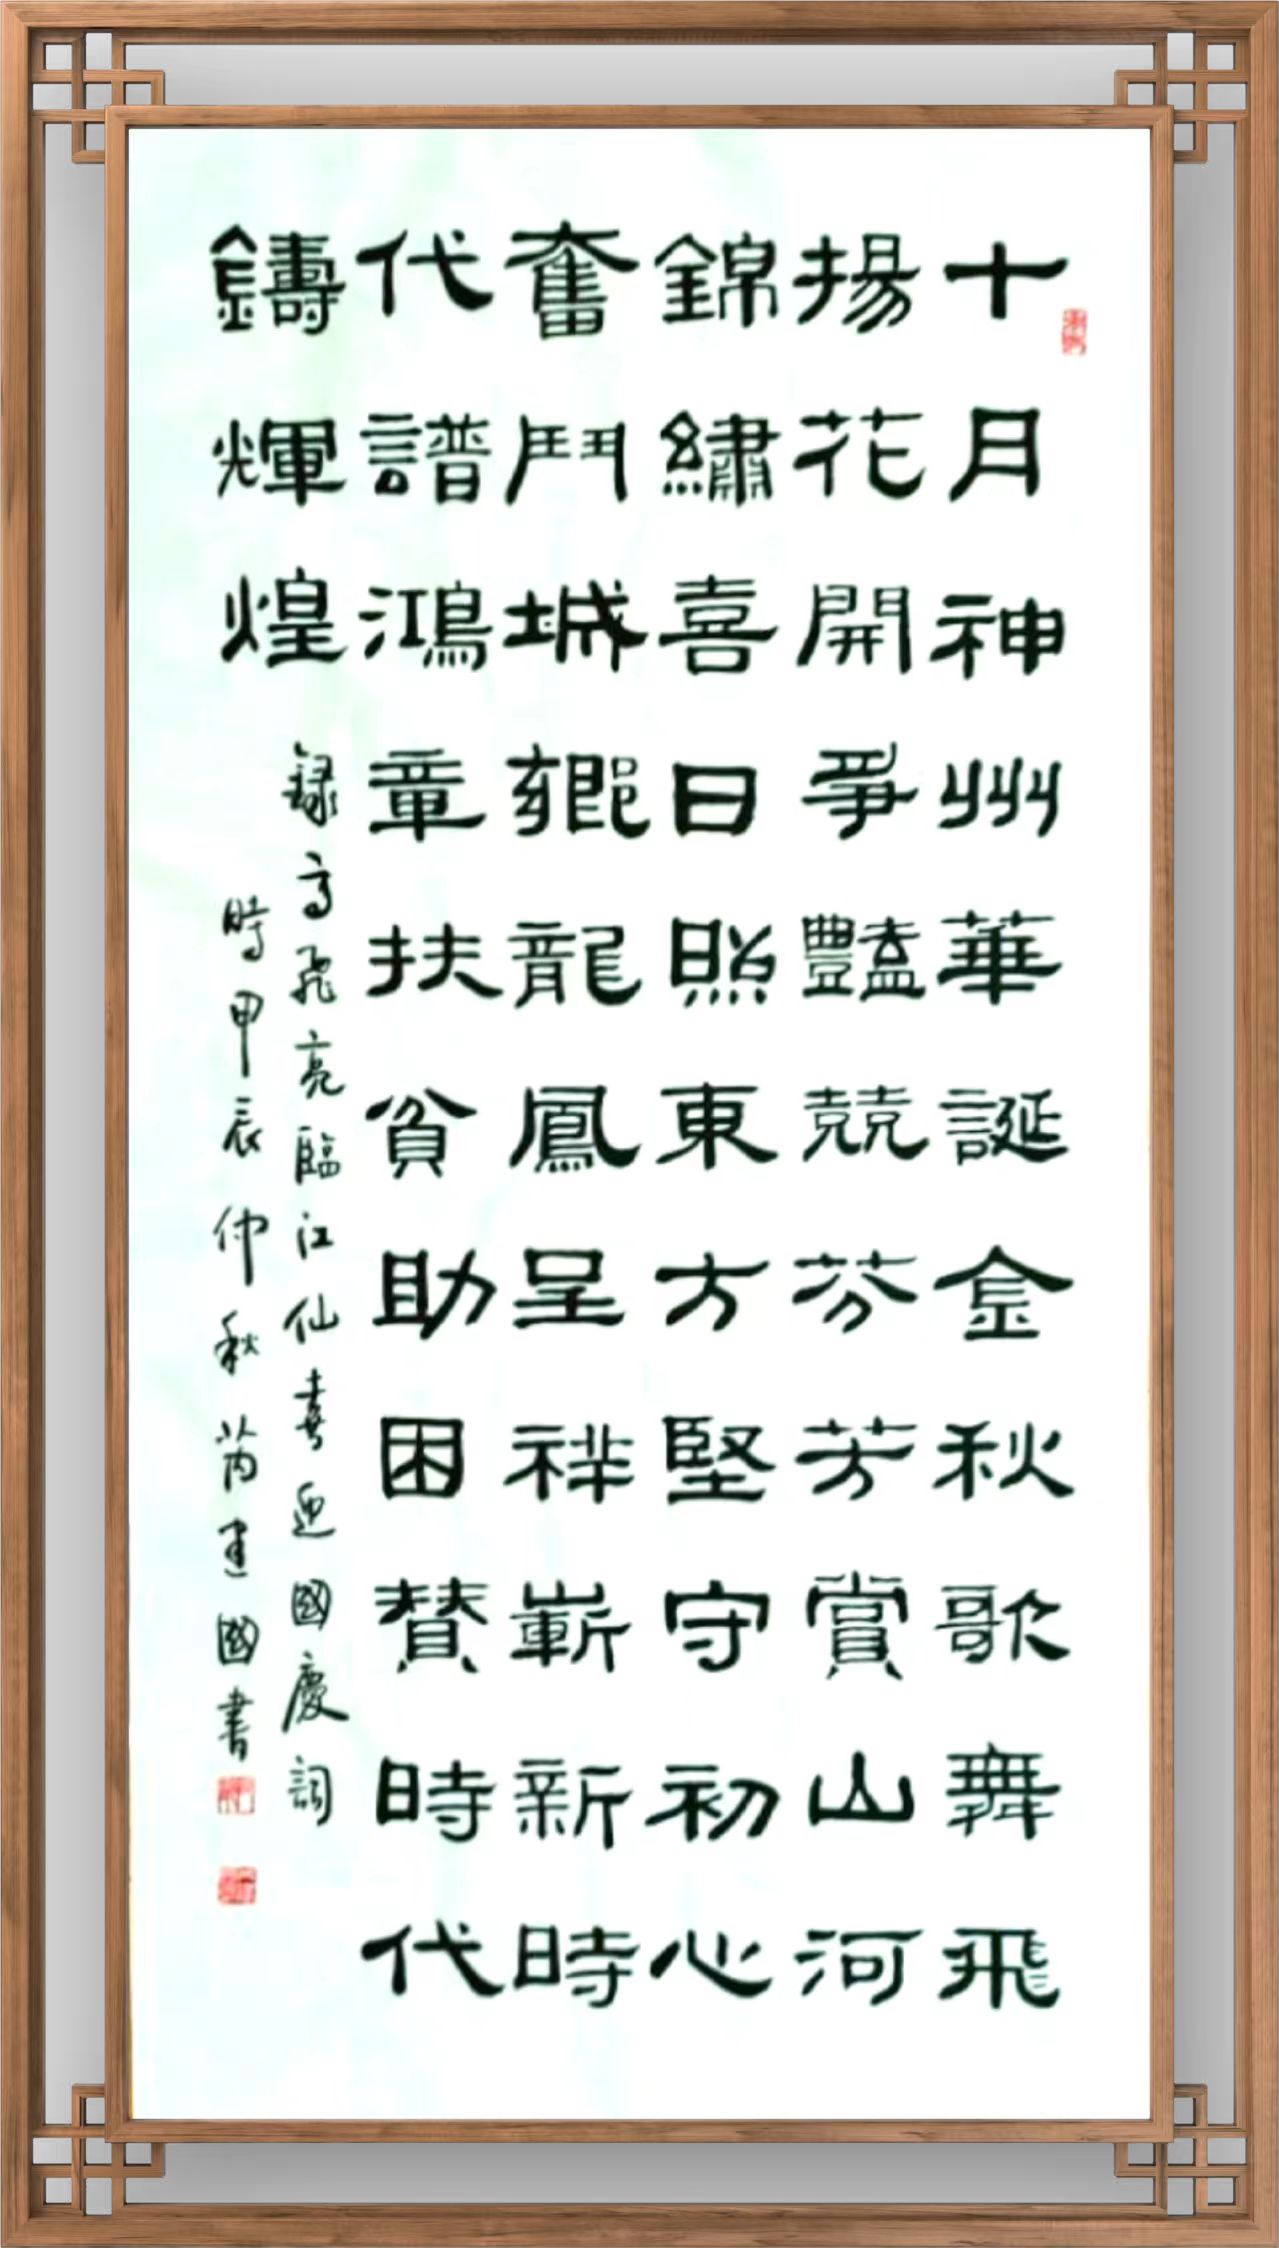 十月神州華誕金秋歌舞飛
揚花開爭豔競芬芳賞山河
錦繡喜日照東方堅守初心
奮鬥城鄉龍鳳呈祥嶄新時
代譜鴻章扶貧助困贊時代
鑄輝煌
録高飛亮臨江仙喜迎國慶詞
時甲辰仲秋芮建國書